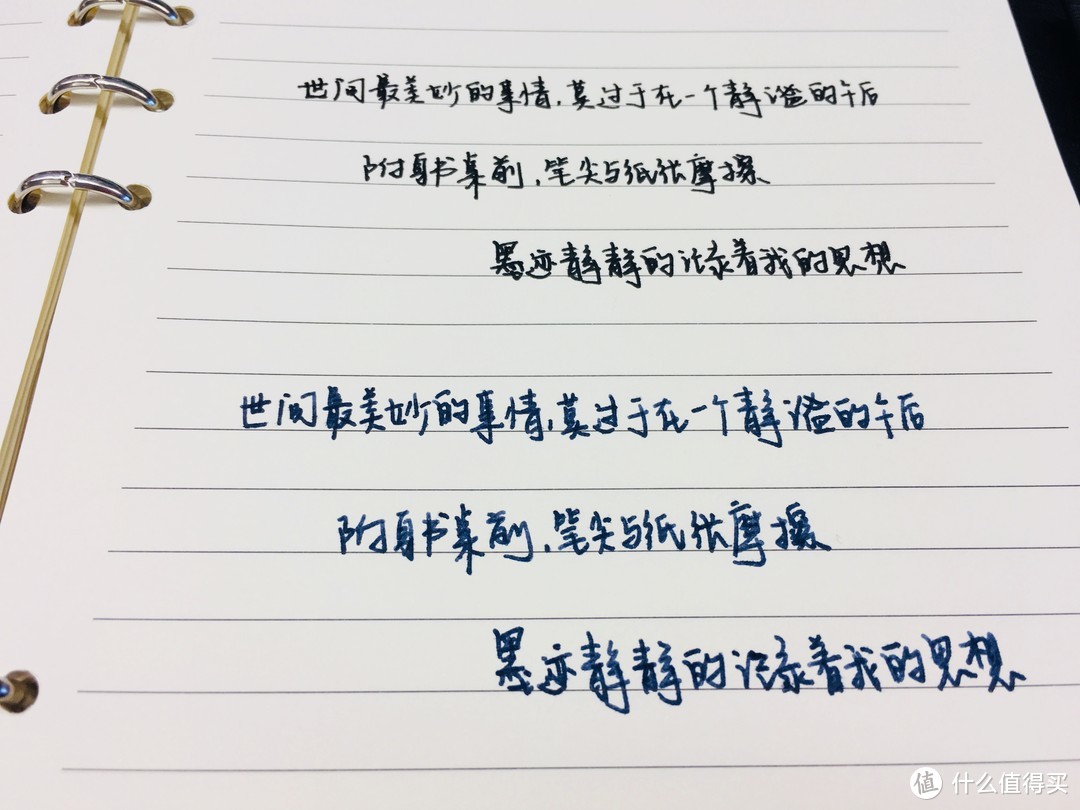 世间最美妙的事情,莫过于在一个静谧的午后
附身书桌前,笔尖与纸张摩擦
墨迹静静的记录着我的思想
世间最美妙的事情,莫过于在一个静谧的午后
附身书桌前,笔尖与纸张摩擦
墨迹静静的记录着我的思想
值 什么值得买